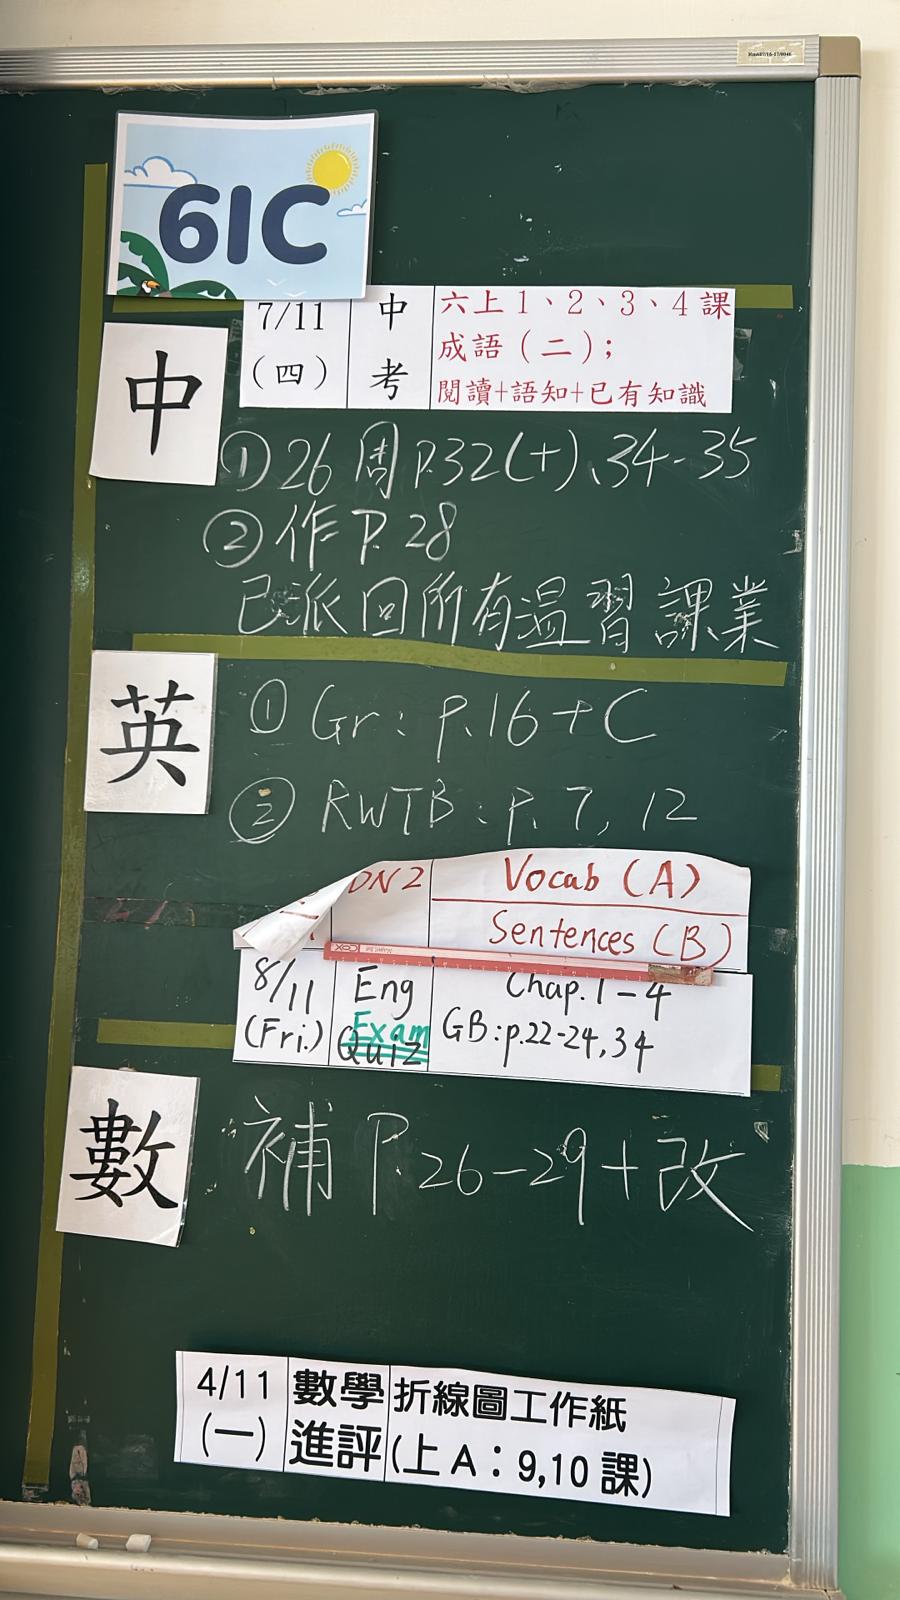 61C
7/11 中 六上1、2、3、4課
(四) 考 成語(二);
閱讀+語知+已有知識
中
① 26周P.32(+)、34-35
② 作P.28
已派回所有溫習課業
英
① Gr: p.16+C
② RWTB: p.7, 12
DN2 Vocab (A)
Sentences (B)
8/11 Eng Chap.1-4
(Fri.) Exam GB:p.22-24,34
Quiz
數
補P.26-29+改
4/11 數學 折線圖工作紙
(一) 進評 (上A:9,10課)